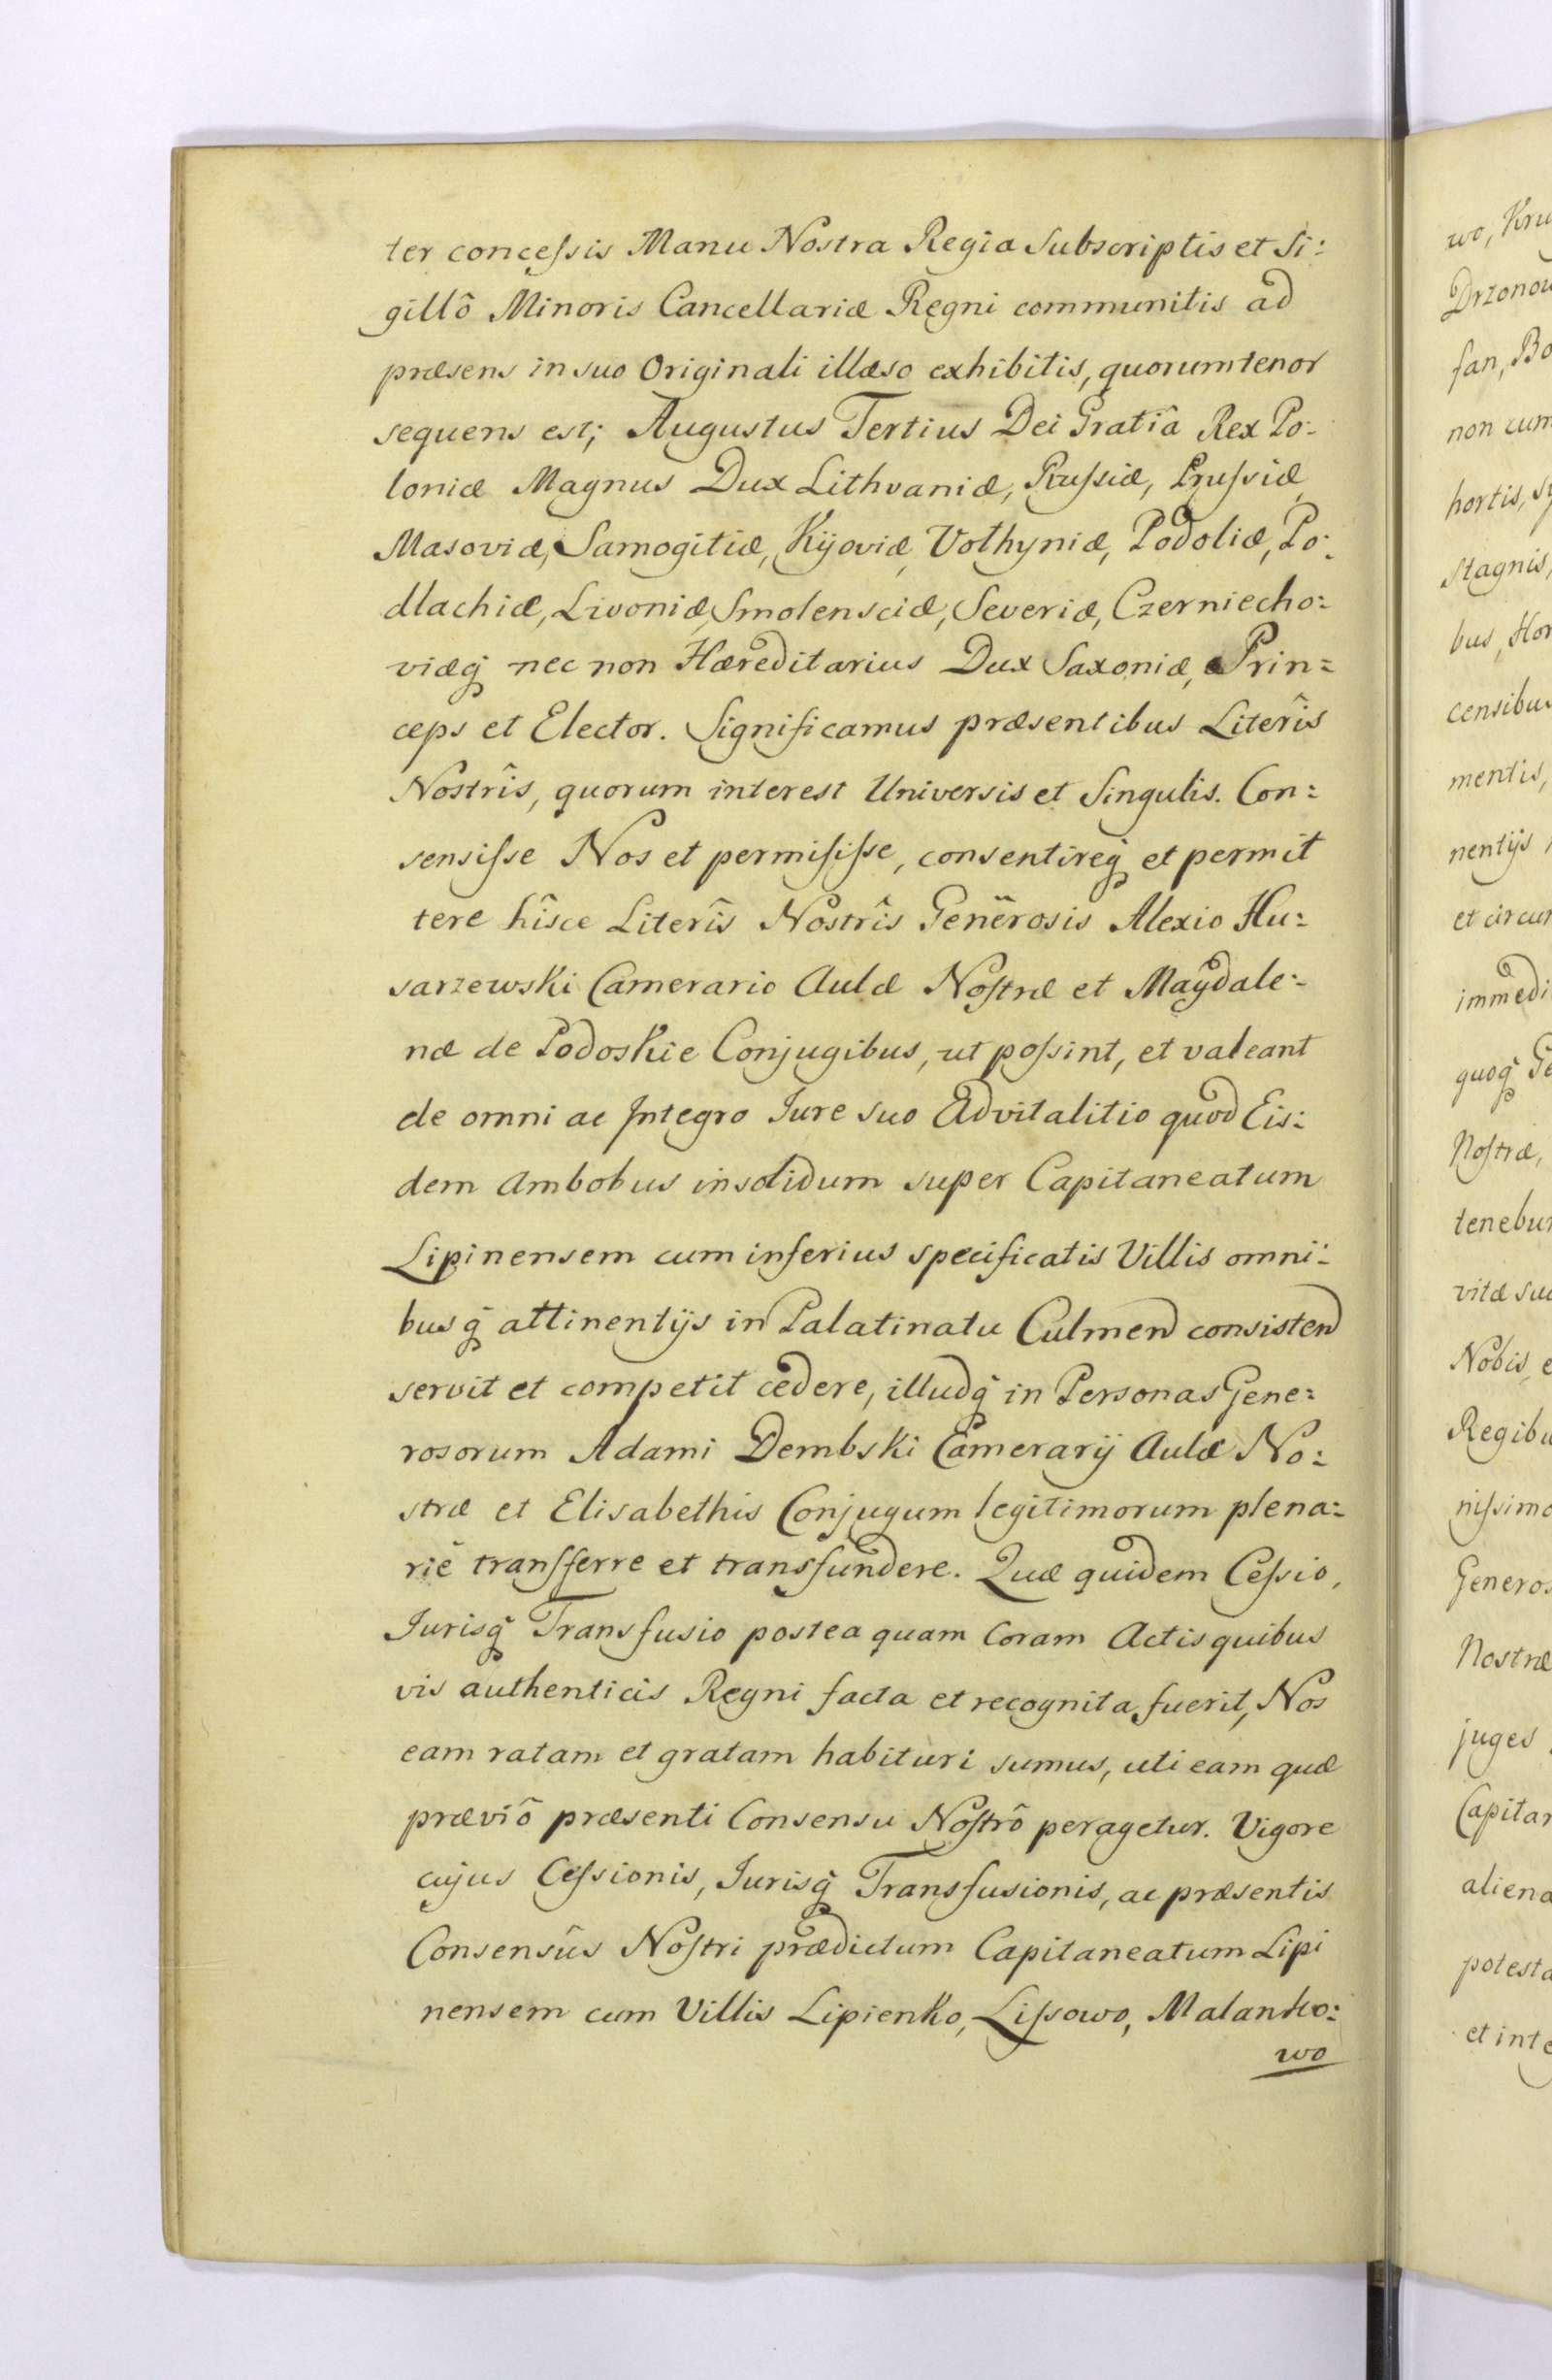 ter concessis Manu Nostra Regia Subscriptis et Si:
gillô Minoris Cancellariæ Regni communitis ad
præsens in suo Originali illæso exhibitis, quorum tenor
sequens est; Augustus Tertius Dei Gratiâ Rex Po:
loniæ Magnus Dux Lithvaniæ, Russiæ, Prussiæ,
Masoviæ, Samogitiæ, Kijoviæ, Volhyniæ, Podoliæ, Po:
dlachiæ, Livoniæ, Smolensciæ, Severiæ, Czerniecho:
viæq̃ nec non Hæreditarius Dux Saxoniæ, Prin:
ceps et Elector. Significamus præsentibus Literîs
Nostrîs, quorum interest Universis et Singulis. Con:
sensisse Nos et permisisse, consentireq̃ et permit
tere hîsce Literîs Nostrîs Generosis Alexio Hu:
sarzewski Camerario Aulæ Nostræ et Magdale:
næ de Podoskie Conjugibus, ut possint, et valeant
de omni ac Integro Jure suo Advitalitio quod Eis:
dem ambobus insolidum super Capitaneatum
Lipinensem cum inferius specificatis Villis omni:
busq̃ attinentijs in Palatinatu Culmen consisten
servit et competit cedere, illudq̃ in Personas Gene:
rosorum Adami Dembski Camerarij Aulæ No:
stræ et Elisabethis Conjugum legitimorum plena:
riê transferre et transfundere. Quæ quidem Cessio,
Jurisq̃ Transfusio postea quam Coram Actis quibus
vis authenticis Regni facta et recognita fuerit, Nos
eam ratam et gratam habituri sumus, uti eam quæ
præviô præsenti Consensu Nostrô peragetur. Vigore
cujus Cessionis, Jurisq̃ Transfusionis, ac præsentis
Consensûs Nostri prædictum Capitaneatum Lipi
nensem cum Villis Lipienko, Lissowo, Malanko:
wo
wo, Kru
Drzonow
san, Bo
non cum
hortis, sy
stagnis,
bus, Hor
censibus
mentis,
nentijs
et circum
immedi
quoq̃ Ge
Nostræ,
tenebun
vitæ suæ
Nobis, e
Regibu
nissimo
Generos
Nostræ
juges
Capitan
aliena
potesta
et inte